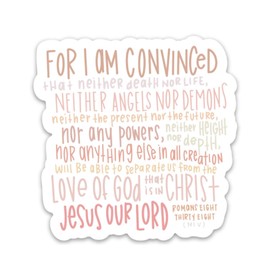 FOR I AM CONVINCED
that neither death nor life,
NEITHER ANGELS NOR DEMONS
neither the present nor the future,
nor any powers, neither HEIGHT
nor depth,
nor anything else in all creation
will be able to separate us from the
LOVE OF GOD that is in CHRIST
JESUS OUR LORD ROMANS EIGHT
THIRTY EIGHT
(NIV)